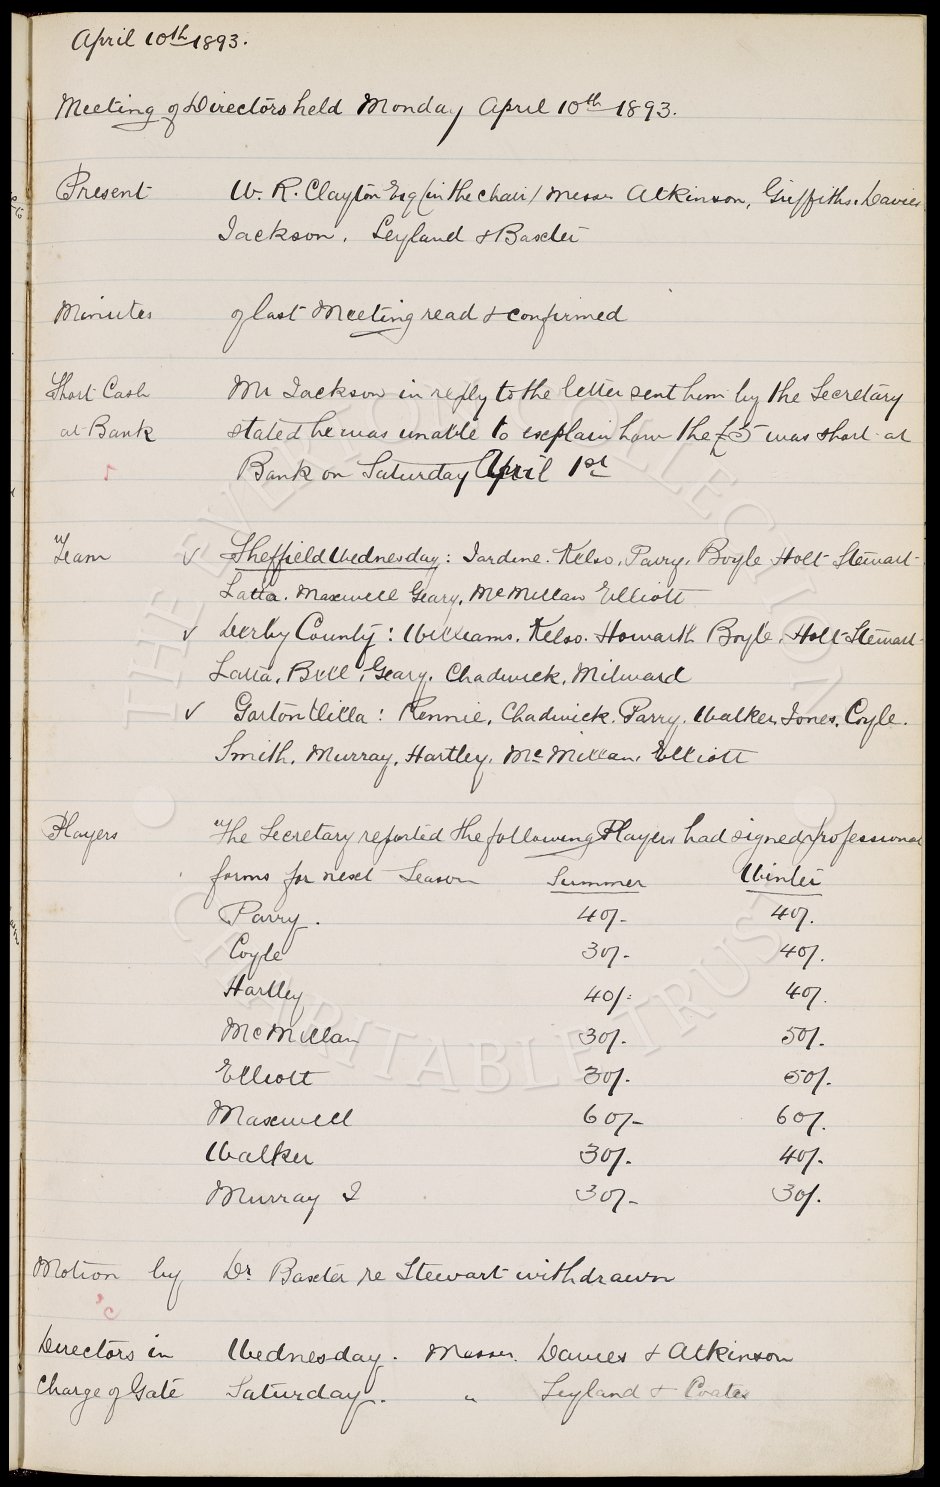 April 10th 1893.
Meeting of Directors held Monday April 10th 1893.
Present W. R. Clayton Esq (in the chair) Messrs Atkinson, Griffiths, Davies
Jackson, Leyland & Baxter
Minutes of last Meeting read & confirmed
Short Cash Mr Jackson in reply to the letter sent him by the Secretary
at Bank stated he was unable to explain how the £5 was short at
Bank on Saturday April 1st
Team ✓ Sheffield Wednesday: Jardine. Kelso, Parry, Boyle Holt Stewart
Latta. Maxwell Geary, McMillan Elliott
✓ Derby County: Williams. Kelso. Howarth Boyle, Holt Stewart
Latta, Bell, Geary, Chadwick, Milward
✓ Gorton Villa: Rennie, Chadwick, Parry, Walker, Jones, Coyle.
Smith, Murray, Hartley, McMillan, Elliott
Players The Secretary reported the following Players had signed professional
forms for next Season Summer Winter
Parry. 40/- 40/.
Coyle 30/- 40/.
Hartley 40/- 40/.
McMillan 30/. 50/.
Elliott 30/. 50/.
Maxwell 60/- 60/.
Walker 30/. 40/.
Murray J 30/- 30/.
Motion by Dr Baxter re Stewart withdrawn
Directors in Wednesday. Messrs. Davies & Atkinson
Charge of Gate Saturday. " Leyland & Coates
THE EVERTON COLLECTION
CHARITABLE TRUST